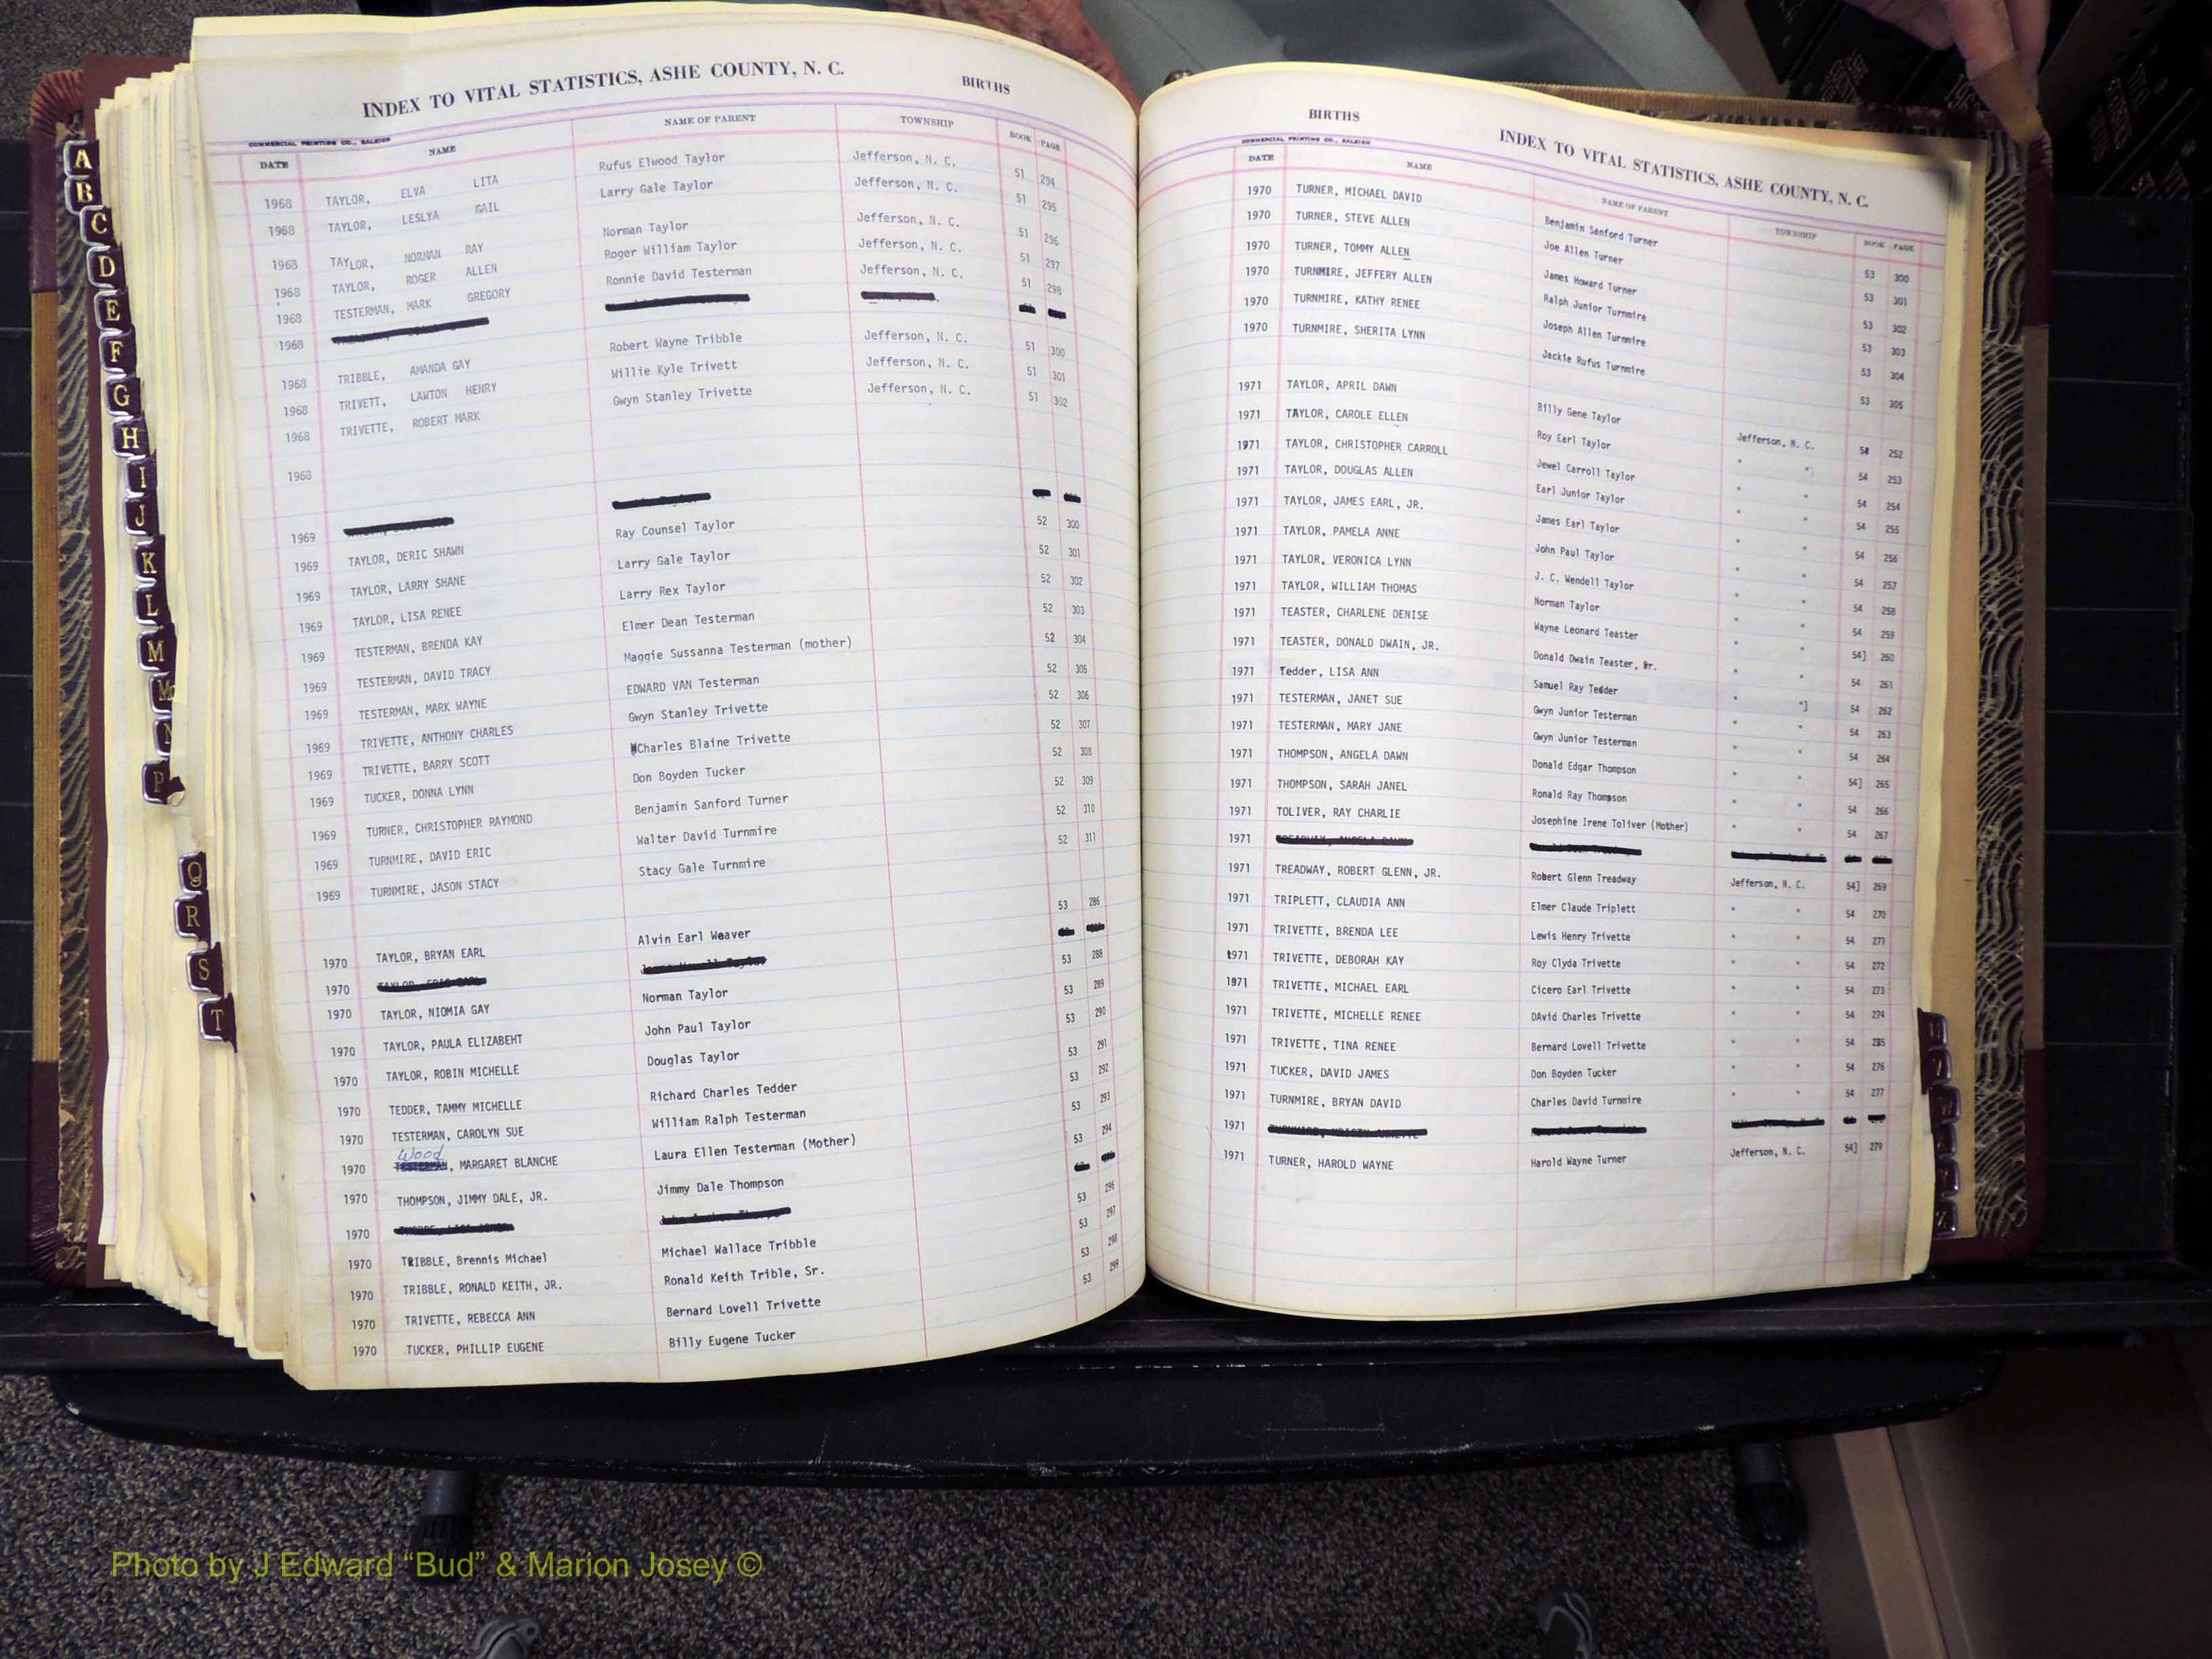 INDEX TO VITAL STATISTICS, ASHE COUNTY, N. C. BIRTHS
COMMERCIAL PRINTING CO., RALEIGH
DATE NAME NAME OF PARENT TOWNSHIP BOOK PAGE
1968 TAYLOR, ELVA LITA Rufus Elwood Taylor Jefferson, N. C. 51 294
1968 TAYLOR, LESLYA GAIL Larry Gale Taylor Jefferson, N. C. 51 295
1968 TAYLOR, NORMAN RAY Norman Taylor Jefferson, N. C. 51 296
1968 TAYLOR, ROGER ALLEN Roger William Taylor Jefferson, N. C. 51 297
1968 TESTERMAN, MARK GREGORY Ronnie David Testerman Jefferson, N. C. 51 298
1968
1968 TRIBBLE, AMANDA GAY Robert Wayne Tribble Jefferson, N. C. 51 300
1968 TRIVETT, LAWTON HENRY Willie Kyle Trivett Jefferson, N. C. 51 301
1968 TRIVETTE, ROBERT MARK Gwyn Stanley Trivette Jefferson, N. C. 51 302
1968
1969
1969 TAYLOR, DERIC SHAWN Ray Counsel Taylor 52 300
1969 TAYLOR, LARRY SHANE Larry Gale Taylor 52 301
1969 TAYLOR, LISA RENEE Larry Rex Taylor 52 302
1969 TESTERMAN, BRENDA KAY Elmer Dean Testerman 52 303
1969 TESTERMAN, DAVID TRACY Maggie Sussanna Testerman (mother) 52 304
1969 TESTERMAN, MARK WAYNE EDWARD VAN Testerman 52 305
1969 TRIVETTE, ANTHONY CHARLES Gwyn Stanley Trivette 52 306
1969 TRIVETTE, BARRY SCOTT Charles Blaine Trivette 52 307
1969 TUCKER, DONNA LYNN Don Boyden Tucker 52 308
1969 TURNER, CHRISTOPHER RAYMOND Benjamin Sanford Turner 52 309
1969 TURNMIRE, DAVID ERIC Walter David Turnmire 52 310
1969 TURNMIRE, JASON STACY Stacy Gale Turnmire 52 311
1970 TAYLOR, BRYAN EARL Alvin Earl Weaver 53 286
1970
1970 TAYLOR, NIOMIA GAY Norman Taylor 53 288
1970 TAYLOR, PAULA ELIZABEHT John Paul Taylor 53 289
1970 TAYLOR, ROBIN MICHELLE Douglas Taylor 53 290
1970 TEDDER, TAMMY MICHELLE Richard Charles Tedder 53 291
1970 TESTERMAN, CAROLYN SUE William Ralph Testerman 53 292
Wood
1970 TESTERMAN, MARGARET BLANCHE Laura Ellen Testerman (Mother) 53 293
1970 THOMPSON, JIMMY DALE, JR. Jimmy Dale Thompson 53 294
1970
1970 TRIBBLE, Brennis Michael Michael Wallace Tribble 53 296
1970 TRIBBLE, RONALD KEITH, JR. Ronald Keith Trible, Sr. 53 297
1970 TRIVETTE, REBECCA ANN Bernard Lovell Trivette 53 298
1970 TUCKER, PHILLIP EUGENE Billy Eugene Tucker 53 299
BIRTHS INDEX TO VITAL STATISTICS, ASHE COUNTY, N. C.
COMMERCIAL PRINTING CO., RALEIGH
DATE NAME NAME OF PARENT TOWNSHIP BOOK PAGE
1970 TURNER, MICHAEL DAVID Benjamin Sanford Turner 53 300
1970 TURNER, STEVE ALLEN Joe Allen Turner 53 301
1970 TURNER, TOMMY ALLEN James Howard Turner 53 302
1970 TURNMIRE, JEFFERY ALLEN Ralph Junior Turnmire 53 303
1970 TURNMIRE, KATHY RENEE Joseph Allen Turnmire 53 304
1970 TURNMIRE, SHERITA LYNN Jackie Rufus Turnmire 53 305
1971 TAYLOR, APRIL DAWN Billy Gene Taylor Jefferson, N. C. 54 252
1971 TAYLOR, CAROLE ELLEN Roy Earl Taylor " " 54 253
1971 TAYLOR, CHRISTOPHER CARROLL Jewel Carroll Taylor " " 54 254
1971 TAYLOR, DOUGLAS ALLEN Earl Junior Taylor " " 54 255
1971 TAYLOR, JAMES EARL, JR. James Earl Taylor " " 54 256
1971 TAYLOR, PAMELA ANNE John Paul Taylor " " 54 257
1971 TAYLOR, VERONICA LYNN J. C. Wendell Taylor " " 54 258
1971 TAYLOR, WILLIAM THOMAS Norman Taylor " " 54 259
1971 TEASTER, CHARLENE DENISE Wayne Leonard Teaster " " 54] 260
1971 TEASTER, DONALD DWAIN, JR. Donald Dwain Teaster, Sr. " " 54 261
1971 Tedder, LISA ANN Samuel Ray Tedder " "] 54 262
1971 TESTERMAN, JANET SUE Gwyn Junior Testerman " " 54 263
1971 TESTERMAN, MARY JANE Gwyn Junior Testerman " " 54 264
1971 THOMPSON, ANGELA DAWN Donald Edgar Thompson " " 54] 265
1971 THOMPSON, SARAH JANEL Ronald Ray Thompson " " 54 266
1971 TOLIVER, RAY CHARLIE Josephine Irene Toliver (Mother) " " 54 267
1971
1971 TREADWAY, ROBERT GLENN, JR. Robert Glenn Treadway Jefferson, N. C. 54] 269
1971 TRIPLETT, CLAUDIA ANN Elmer Claude Triplett " " 54 270
1971 TRIVETTE, BRENDA LEE Lewis Henry Trivette " " 54 271
1971 TRIVETTE, DEBORAH KAY Roy Clyda Trivette " " 54 272
1971 TRIVETTE, MICHAEL EARL Cicero Earl Trivette " " 54 273
1971 TRIVETTE, MICHELLE RENEE DAvid Charles Trivette " " 54 274
1971 TRIVETTE, TINA RENEE Bernard Lovell Trivette " " 54 275
1971 TUCKER, DAVID JAMES Don Boyden Tucker " " 54 276
1971 TURNMIRE, BRYAN DAVID Charles David Turnmire " " 54 277
1971
1971 TURNER, HAROLD WAYNE Harold Wayne Turner Jefferson, N. C. 54] 279
A
B
C
D
E
F
G
H
I
J
K
L
M
M
N
P
Q
R
S
T
Photo by J Edward “Bud” & Marion Josey ©